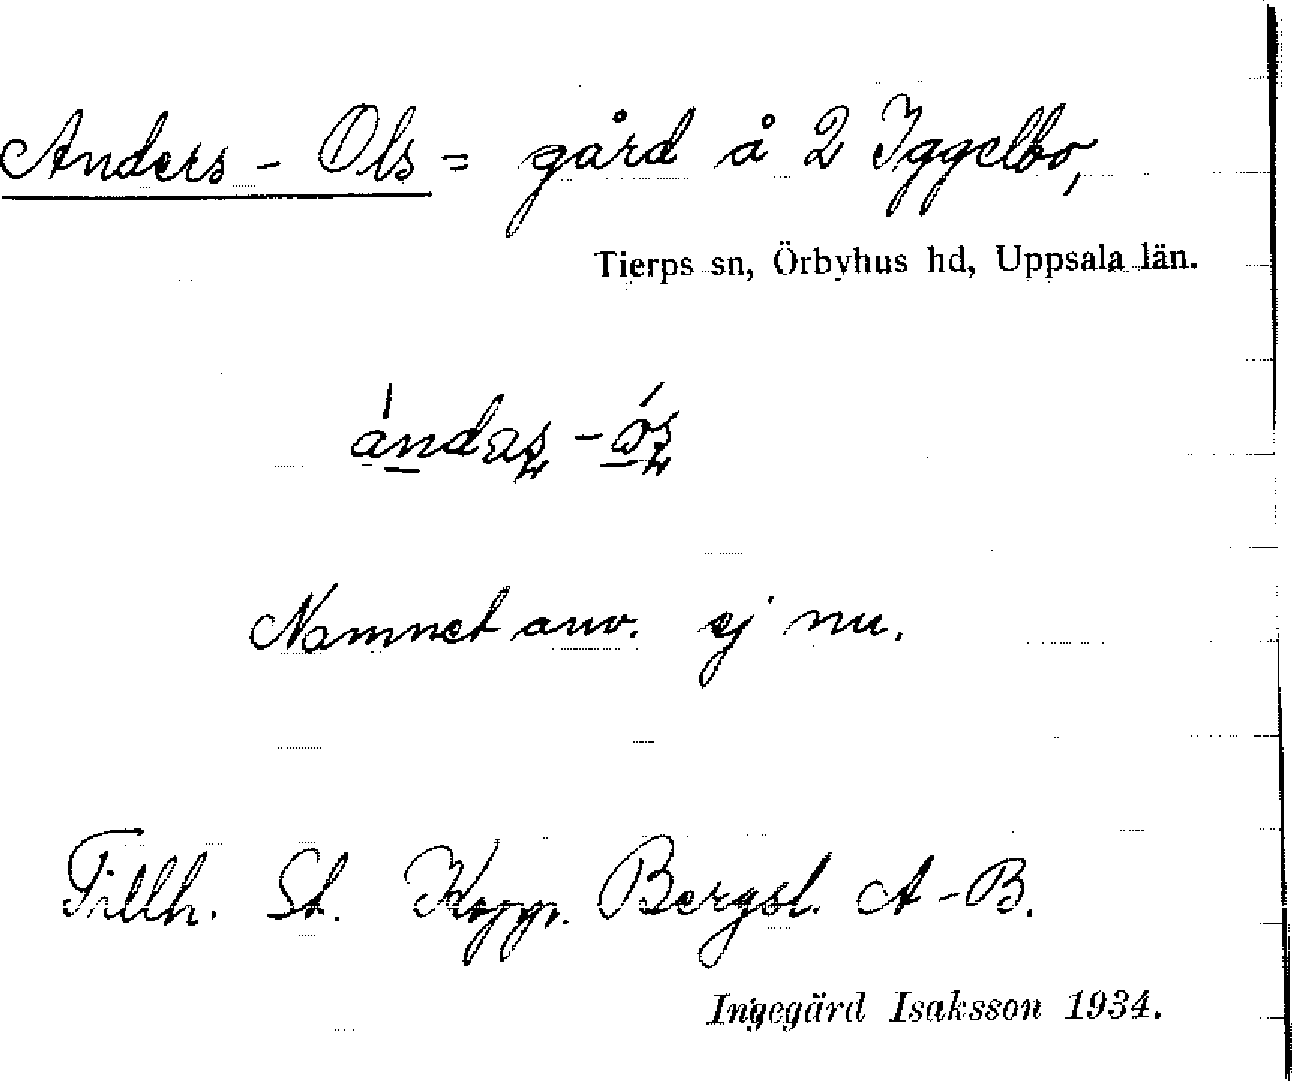 Anders-Ols = gård å 2 Iggelbo,
Tierps sn, Örbyhus hd, Uppsala län.
Namnet anv. ej nu.
Tillh. St. Kopp. Bergsl. A-B.
Ingegärd Isaksson 1934.